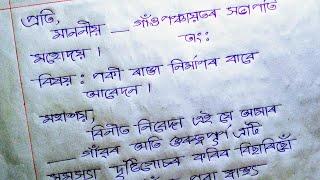 প্ৰতি,
মাননীয় __ গাঁওপঞ্চায়তৰ সভাপতি
মহোদয়।
তাং:
বিষয়: পকী ৰাস্তা নিৰ্মাণৰ বাবে
আবেদন।
মহাশয়,
বিনীত নিবেদন এই যে আমাৰ
__ গাঁৱৰ অতি গুৰুত্বপূৰ্ণ এটি
সমস্যা দৃষ্টিগোচৰ কৰিব বিচাৰিছোঁ